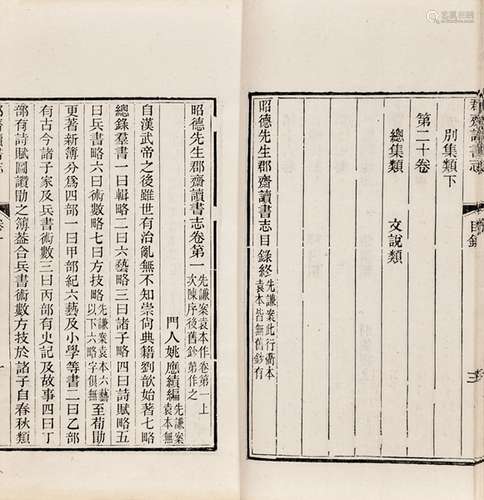 郡齋讀書志 目錄 三
別集類下
第二十卷
總集類 文說類
昭德先生郡齋讀書志目錄終 先謙案此行衢本袁本皆無舊鈔有
昭德先生郡齋讀書志卷第一 先謙案袁本作卷第一上次陳序後舊鈔弟作之
門人姚應績編 先謙案袁本無
自漢武帝之後雖世有治亂無不知崇尙典籍劉歆始著七略
總錄羣書一曰輯略二曰六藝略三曰諸子略四曰詩賦略五
曰兵書略六曰術數略七曰方技略 先謙案袁本六藝以下六略字俱無 至荀勖
更著新簿分爲四部一曰甲部紀六藝及小學等書二曰乙部
有古今諸子家及兵書術數三曰丙部有史記及故事四曰丁
部有詩賦圖讚勖之簿蓋合兵書術數方技於諸子自春秋類